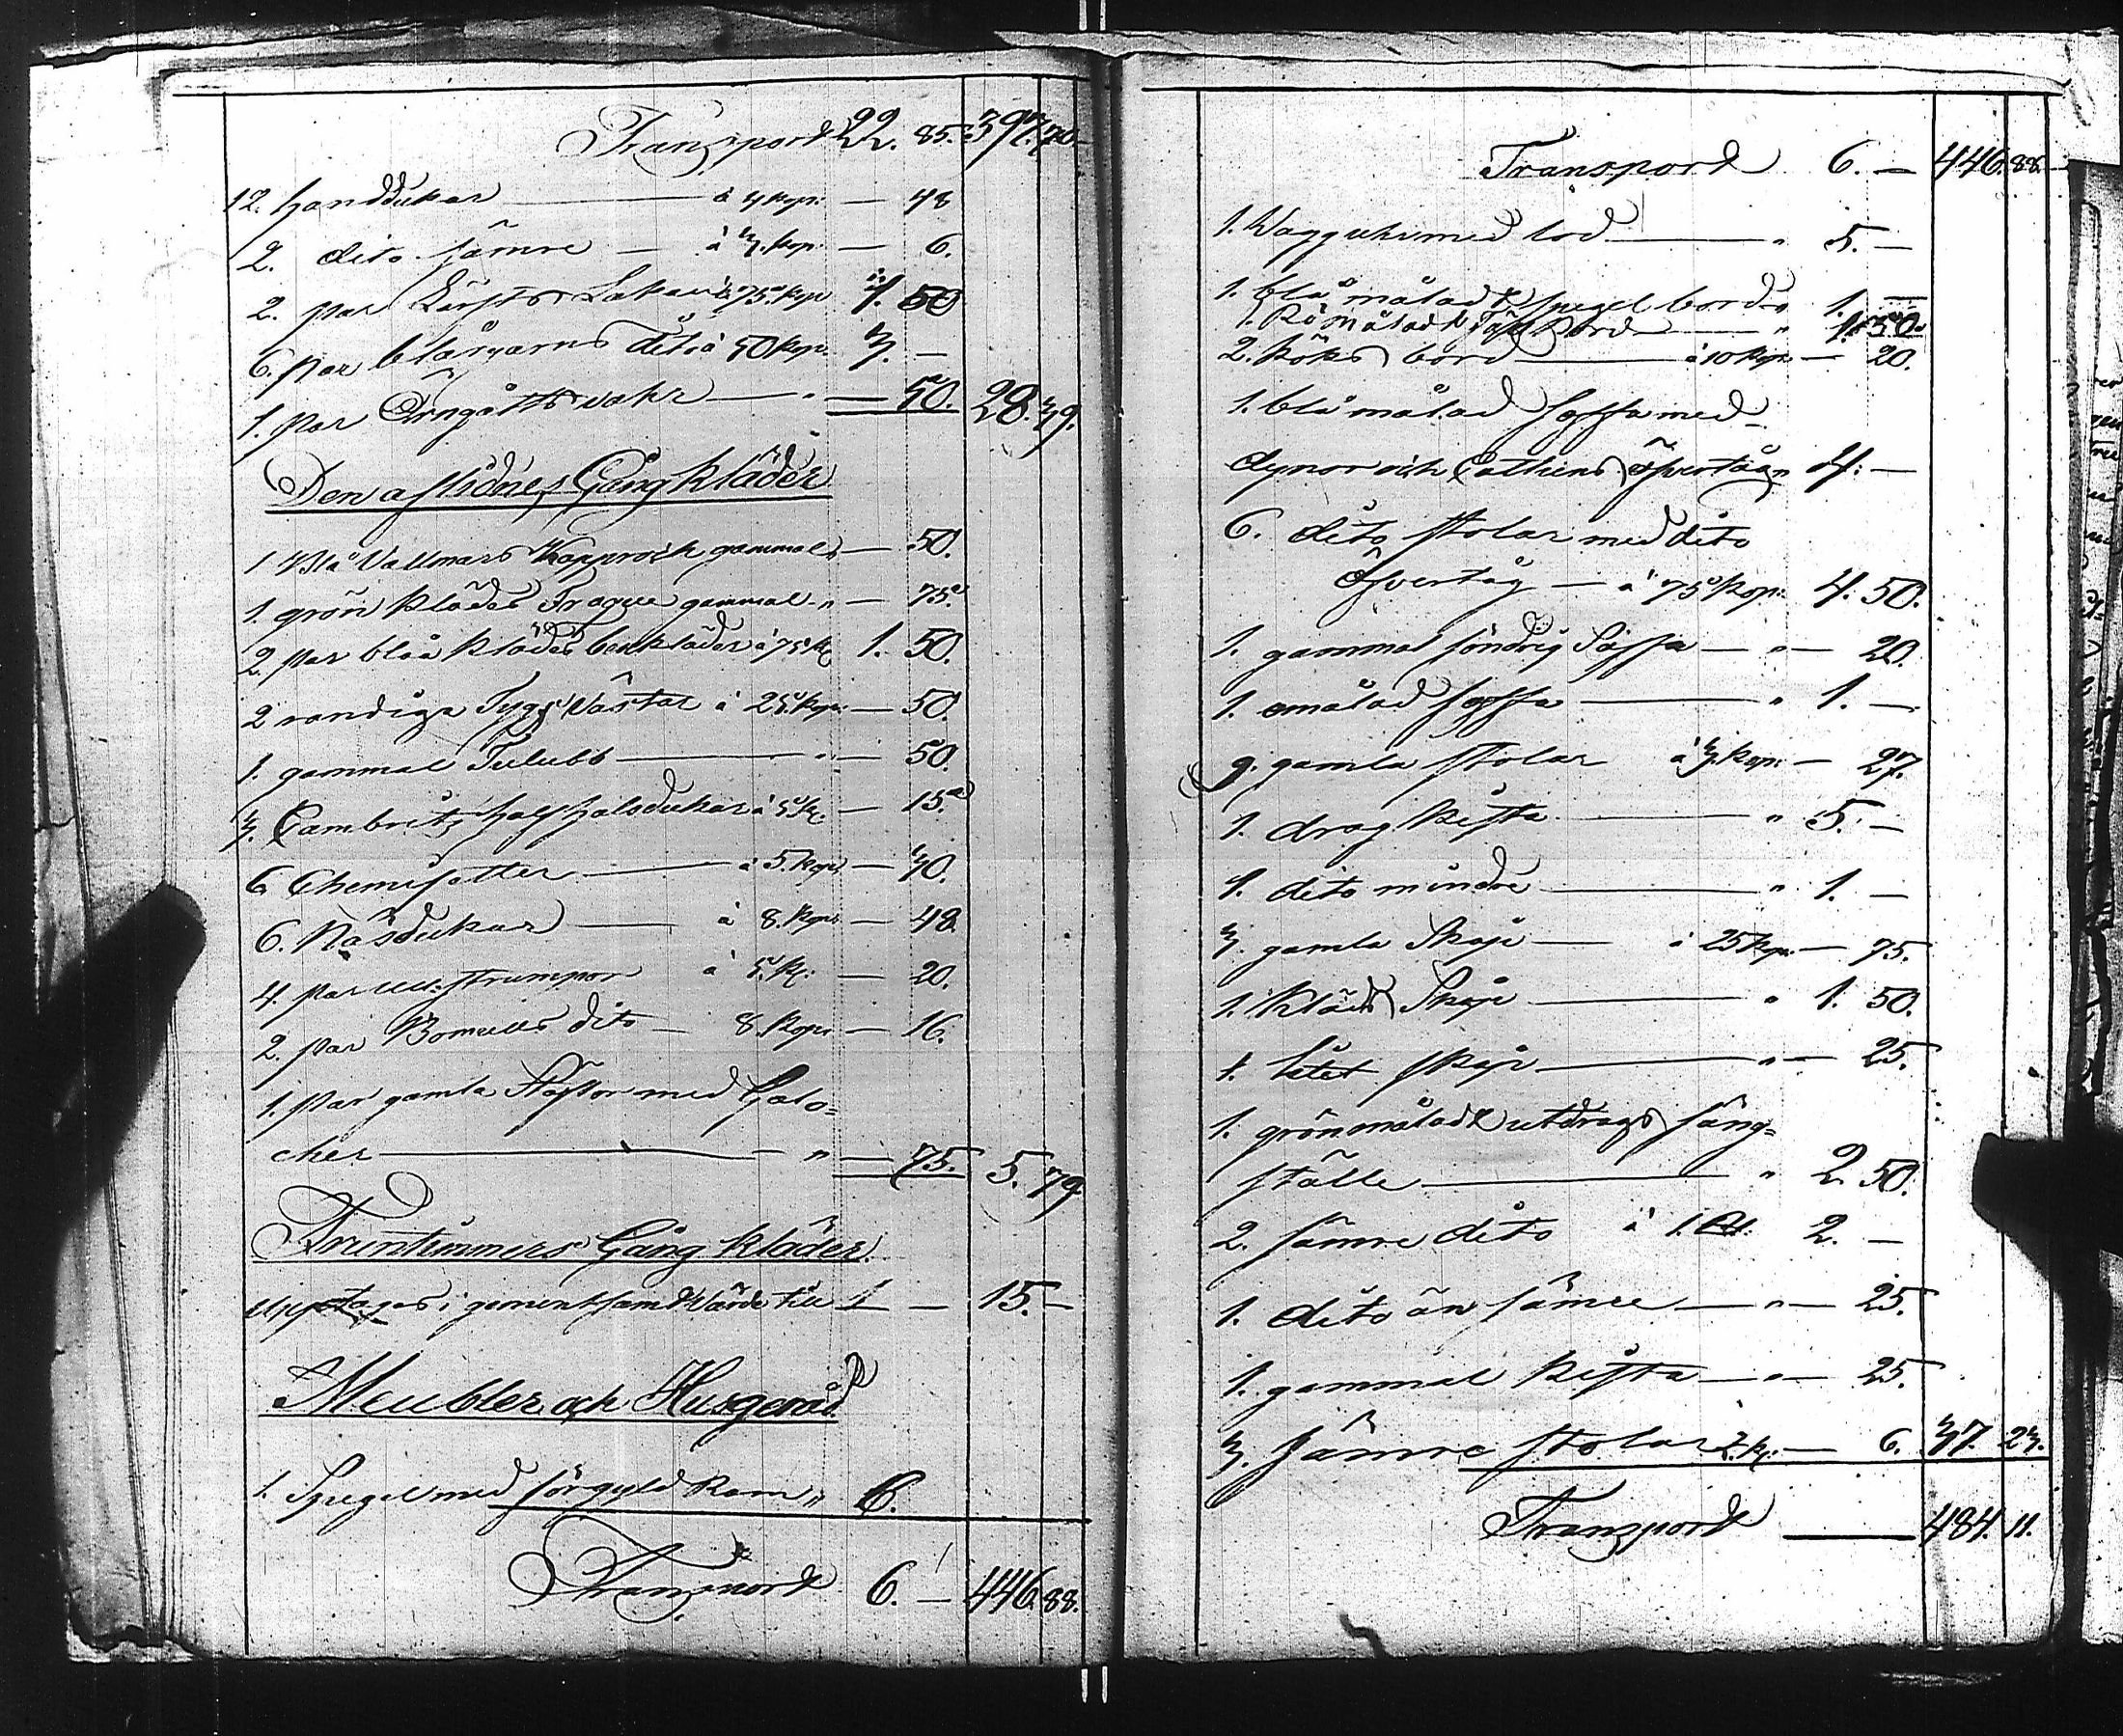 Transport 22. 85. 397. 70
12. handdukar — à 4 kop: — 48
2. dito sämre — à 3. kop: — 6.
2. par Lärfts Lakan à 75 kop 1. 50
6. par blårgarns dito à 50 kop: 3. —
1. par Örngåtts vahr — " — 50. 28. 39.
Den aflidnes Gång kläder
1 Blå Vallmars Kapprock gammal " — 50.
1. grön klädes Fraque gammal " — 75.
2. par blåa klädes benkläder à 75 k. 1. 50.
2 randiga Tygs Västar à 25. kop: — 50.
1. gammal Tulubb — " — 50.
3. Cambrits half halsdukar à 5 k. — 15.
6 Chemisetter — à 5. kop: — 30.
6. Näsdukar — à 8. kop: — 48
4. par ull strumpor à 5. k: — 20.
2. par Bomulls dito — 8. kop: — 16.
1. par gamla Stöflor med Galo=
cher — " — 75. 5. 79
Fruentimmers Gång kläder.
upptages i gement samdt värde till — 15. —
Meubler och Husgeråd
1. Spegel med förgyld Ram " 6.
Transport 6. — 446. 88.
Transport 6. — 446. 88.
1. Vägguhr med lod — " 5. —
1. blå målad spegel bord " 1. —
1. Rö målad Bord — " 1. 50.
2. köks bord — à 10 kop: — 20.
1. blå målad soffa med
dynor och Cattuns öfvertåg " 4. —
6. dito stolar med dito
öfvertåg — à 75 kop: 4. 50.
1. gammal söndrig Soffa — " — 20.
1. omålad soffa — " 1. —
9. gamla stolar à 3. kop: — 27.
1. drag kista — " 5. —
1. dito mindre — " 1. —
3. gamla Skåp — à 25 kop: — 75.
1. kläd Skåp — " 1. 50.
1. litet skåp — " — 25.
1. grönmåladt utdrags säng=
ställe — " 2. 50.
2. sämre dito à 1. R: 2. —
1. dito än sämre — " — 25.
1. gammal kista — " — 25.
3. sämre stolar 2. k: — 6. 37. 23.
Transport — 484. 11.